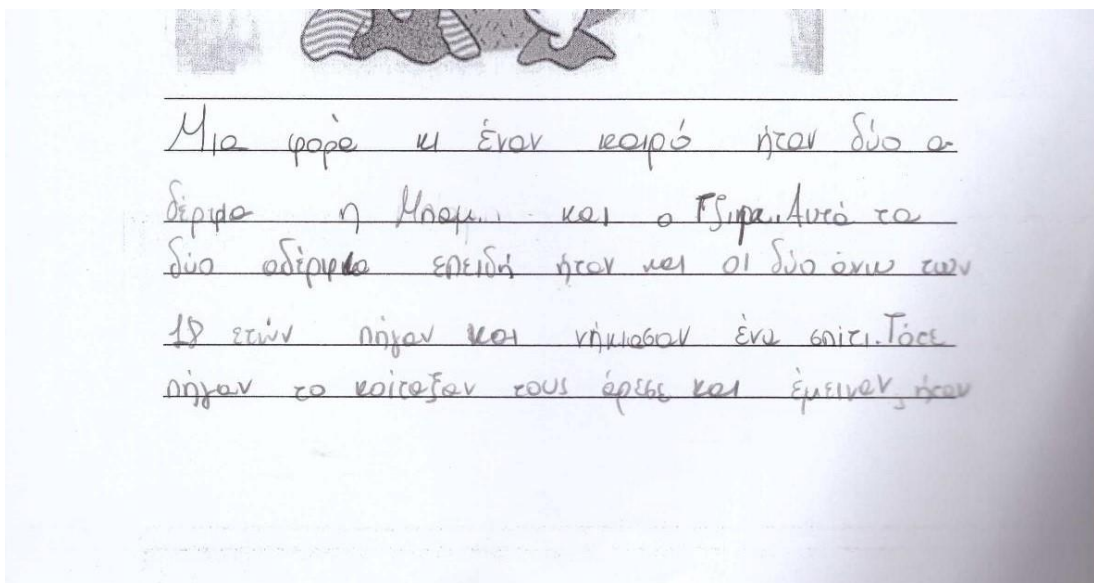 Μια φορά κι έναν καιρό ήταν δύο α-
δέρφια η Μπαμ.. και ο Τζιμ.. Αυτά τα
δύο αδέρφια επειδή ήταν και οι δύο άνω των
18 ετών πήγαν και νήκιασαν ένα σπίτι. Τότε
πήγαν το κοίταξαν τους άρεσε και έμειναν, ήταν